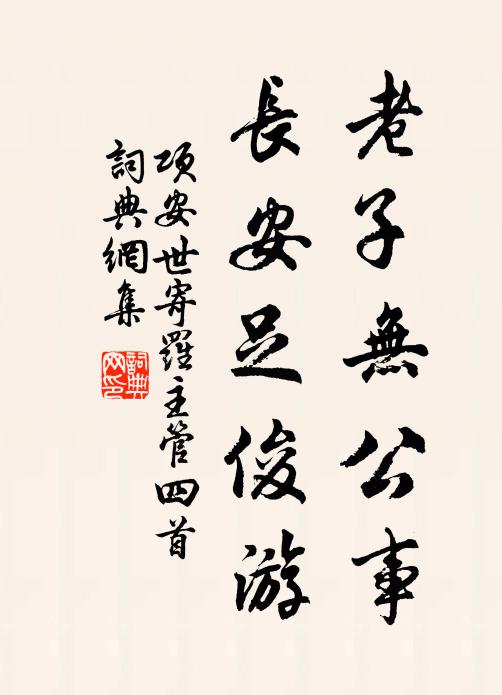 老子無公事
長安足俊游
項安世寄羅主管四首
詞典網集
詞典网印